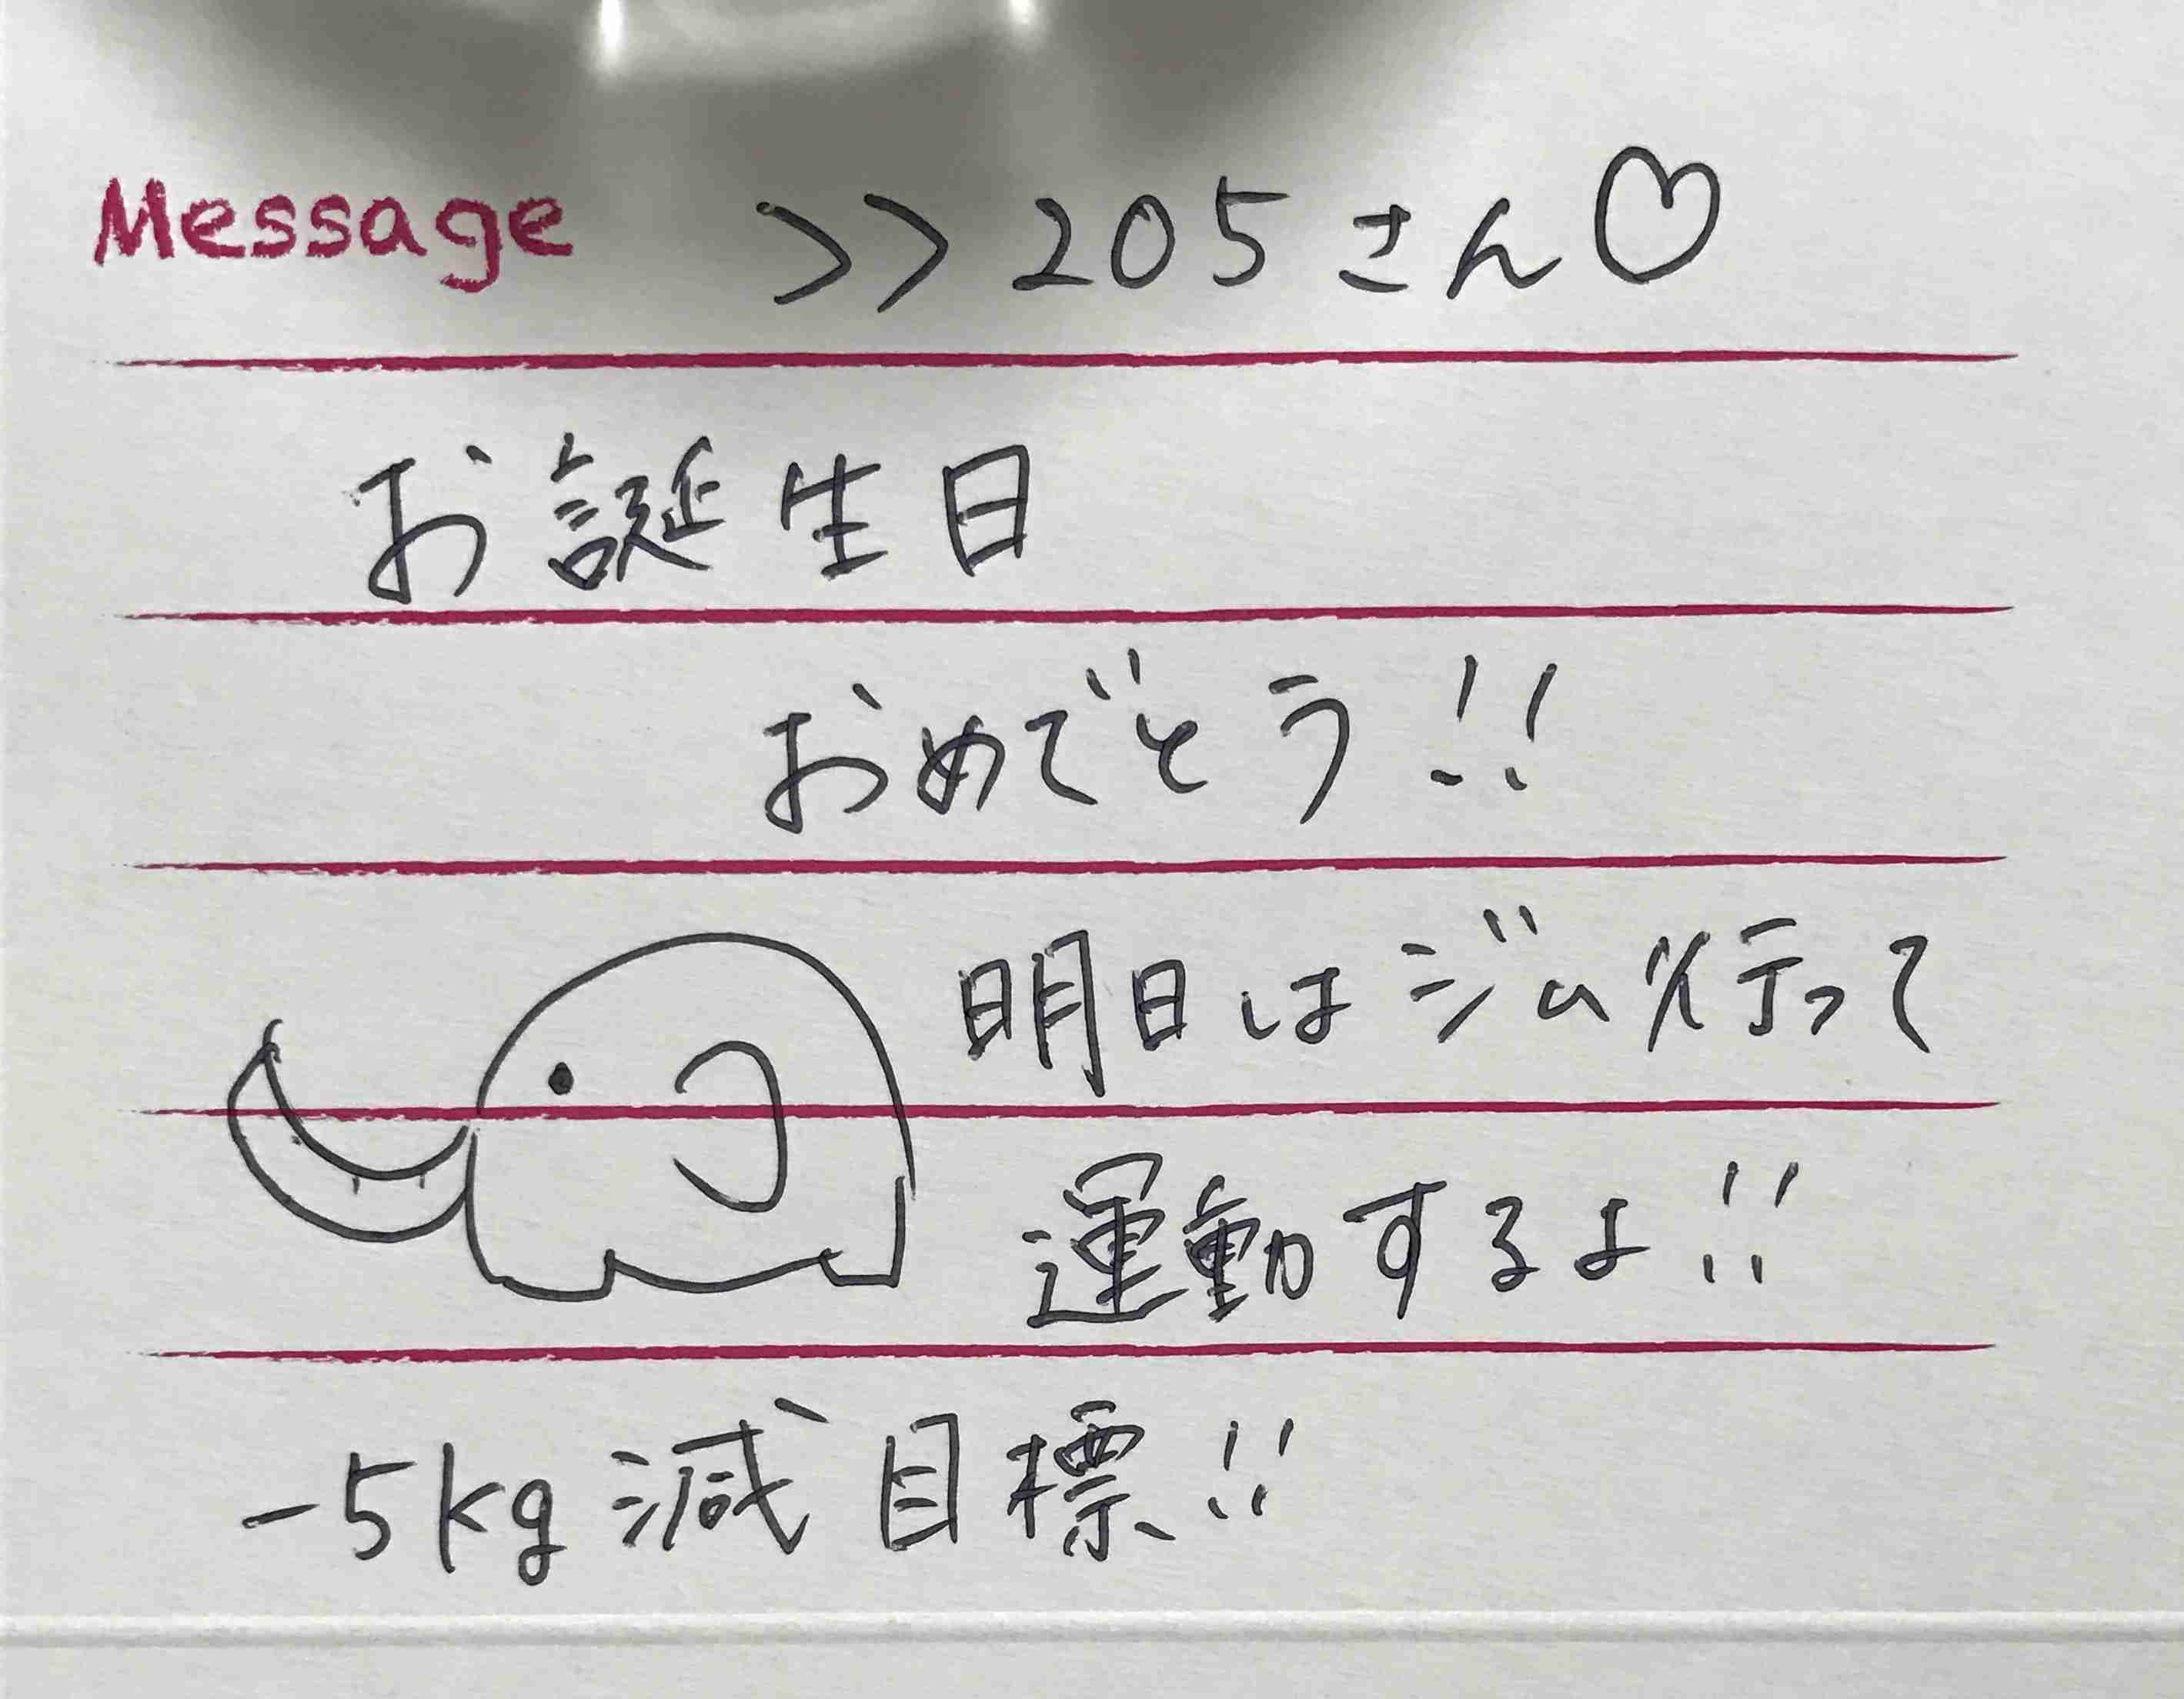 Message >>205さん♡
お誕生日
おめでとう!!
明日はジム行って
運動するよ!!
-5kg減目標!!